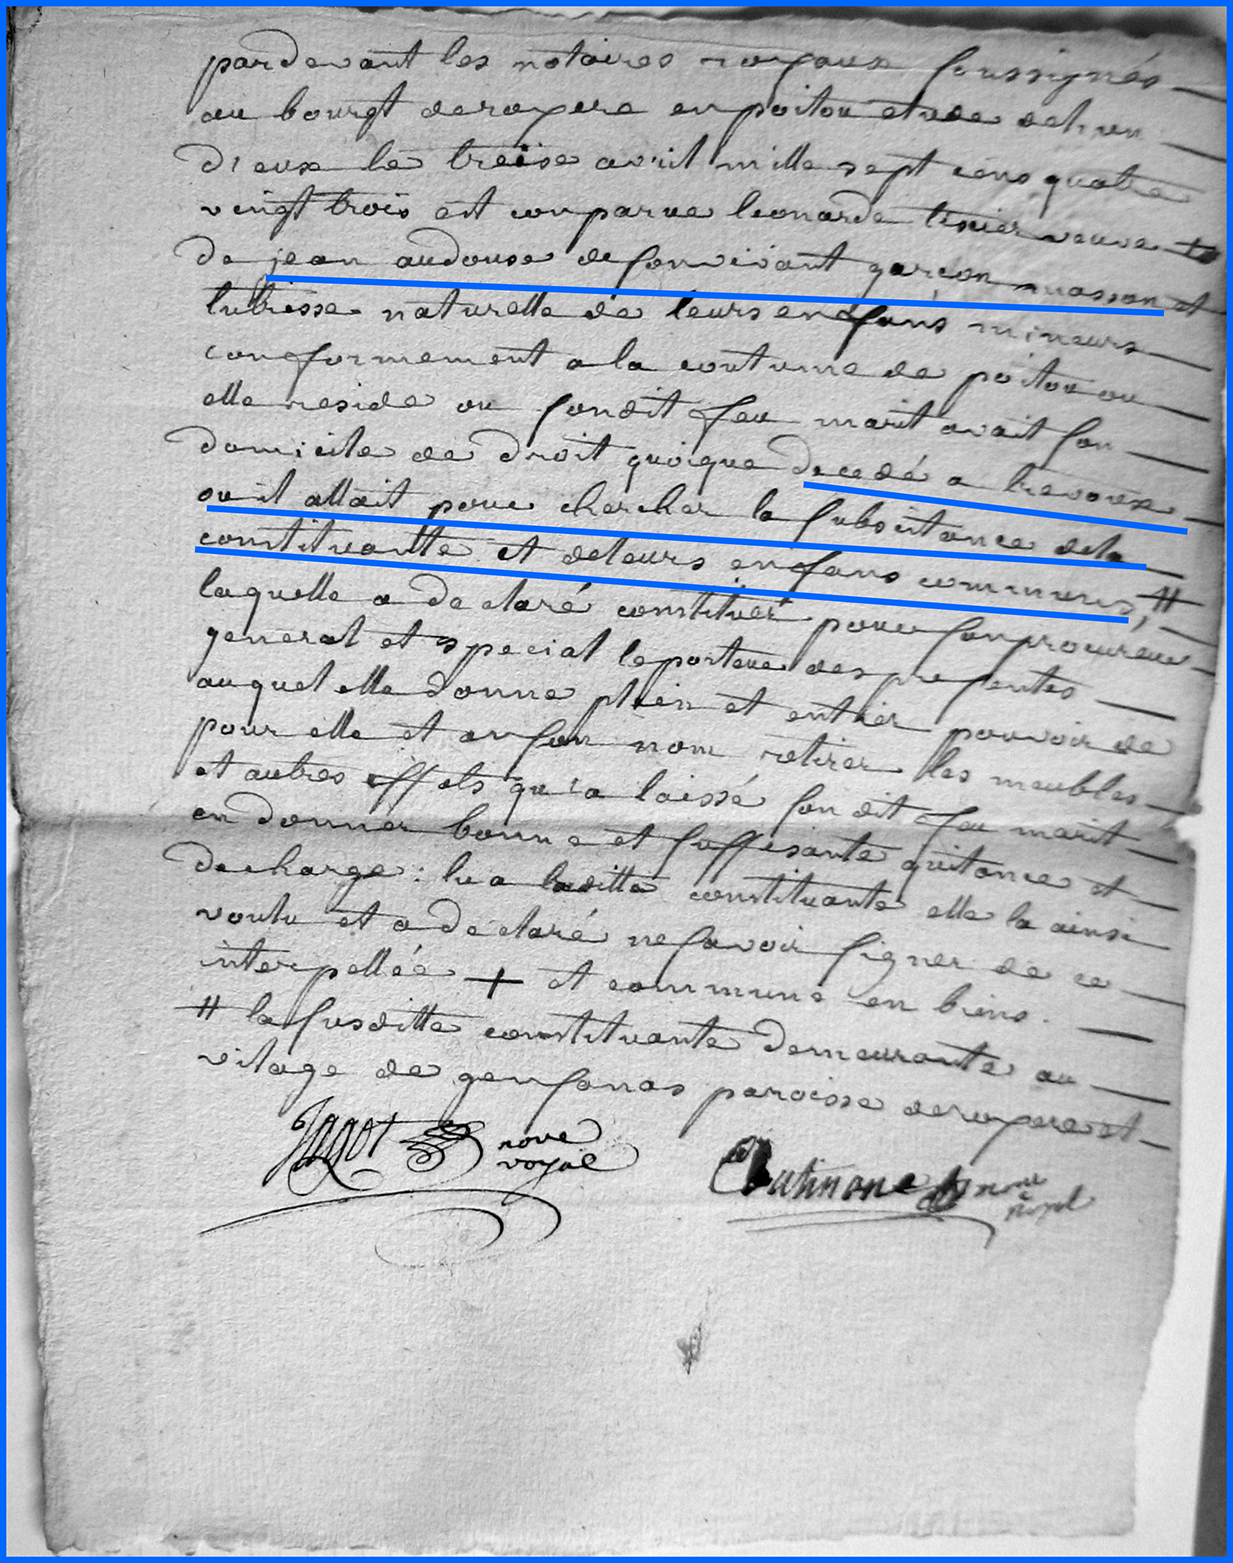 pardevant les notaires royaux soussignés
au bourgt deroyere enpoitou etude delun
d'eux le treise avril mille sept cens quatre
vingt trois est comparue leonarde tixier veuve +
de jean audouse desonvivant garçon masson et
tutrisse naturelle de leurs enfans mineurs
conformement a la coutume de poitou ou
elle reside ou sondit feu marit avait son
domicile de droit quoique decedé a trevoux
ou il allait pour chercher la subsistance dela
constituante et deleurs enfans communs, #
laquelle a declaré constituer pour sonprocureur
general et special leporteur des presentes
auquel elle donne plein et entier pouvoir de
pour elle et enson nom retirer les meubles
et autres effets qu'a laissé sondit feu marit
en donner bonne et suffisante quitance et
decharge : lu a laditte constituante elle la ainsi
voulu et a declaré nesavoir signer de ce
interpellée + et commune en biens.
# la susditte constituante demeurante au
vilage de gensanas paroisse deroyere et
Jagot nore
royal
nore
royal